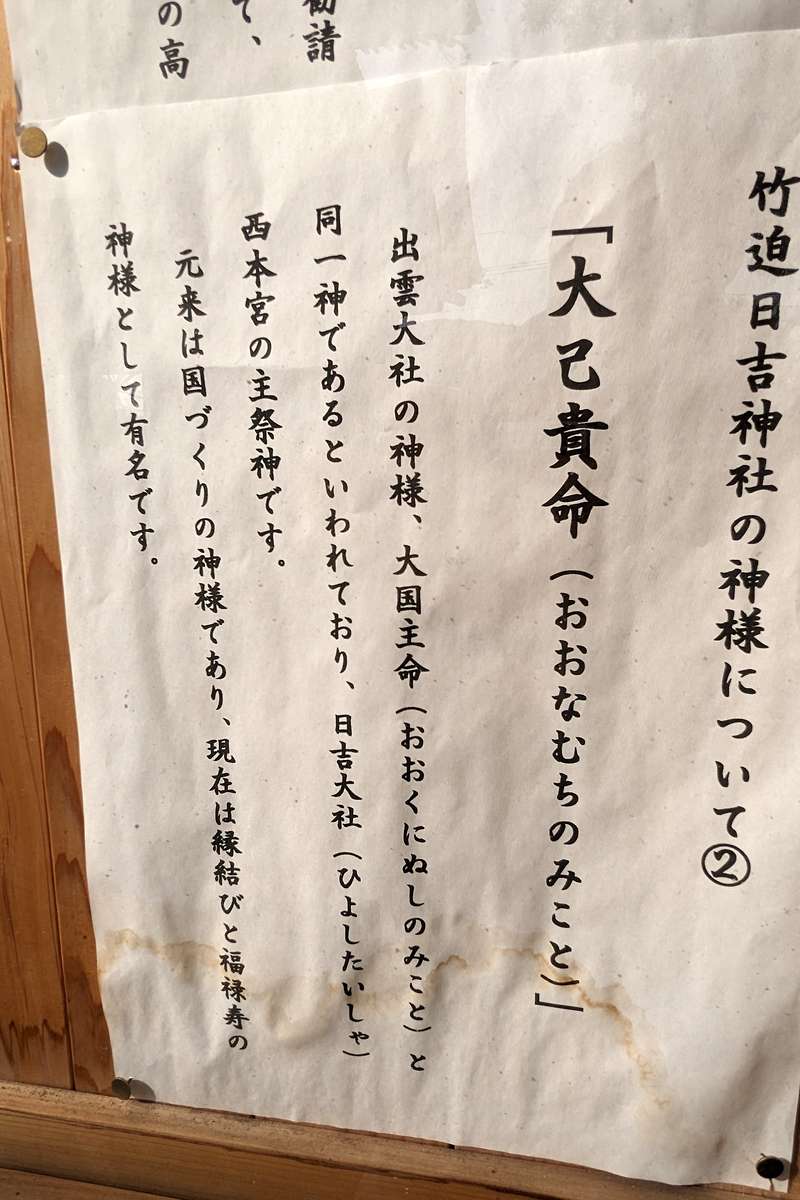 竹迫日吉神社の神様について②
「大己貴命（おおなむちのみこと）」
出雲大社の神様、大国主命（おおくにぬしのみこと）と
同一神であるといわれており、日吉大社（ひよしたいしゃ）
西本宮の主祭神です。
元来は国づくりの神様であり、現在は縁結びと福禄寿の
神様として有名です。
勧請
て、
の高